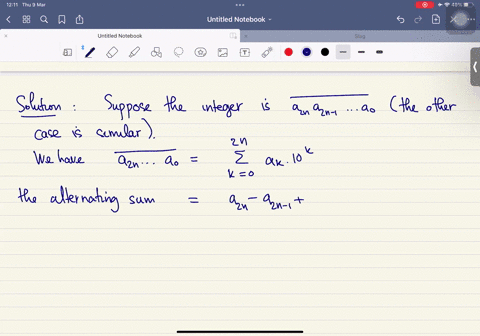 12:11 Thu 9 Mar
49%
Untitled Notebook
Untitled Notebook
Solution : Suppose the integer is a₂ₙ a₂ₙ₋₁ ... a₀ (the other
case is similar).
We have a₂ₙ ... a₀ = ∑ₖ₌₀²ⁿ aₖ · 10ᵏ
the alternating sum = a₂ₙ - a₂ₙ₋₁ +